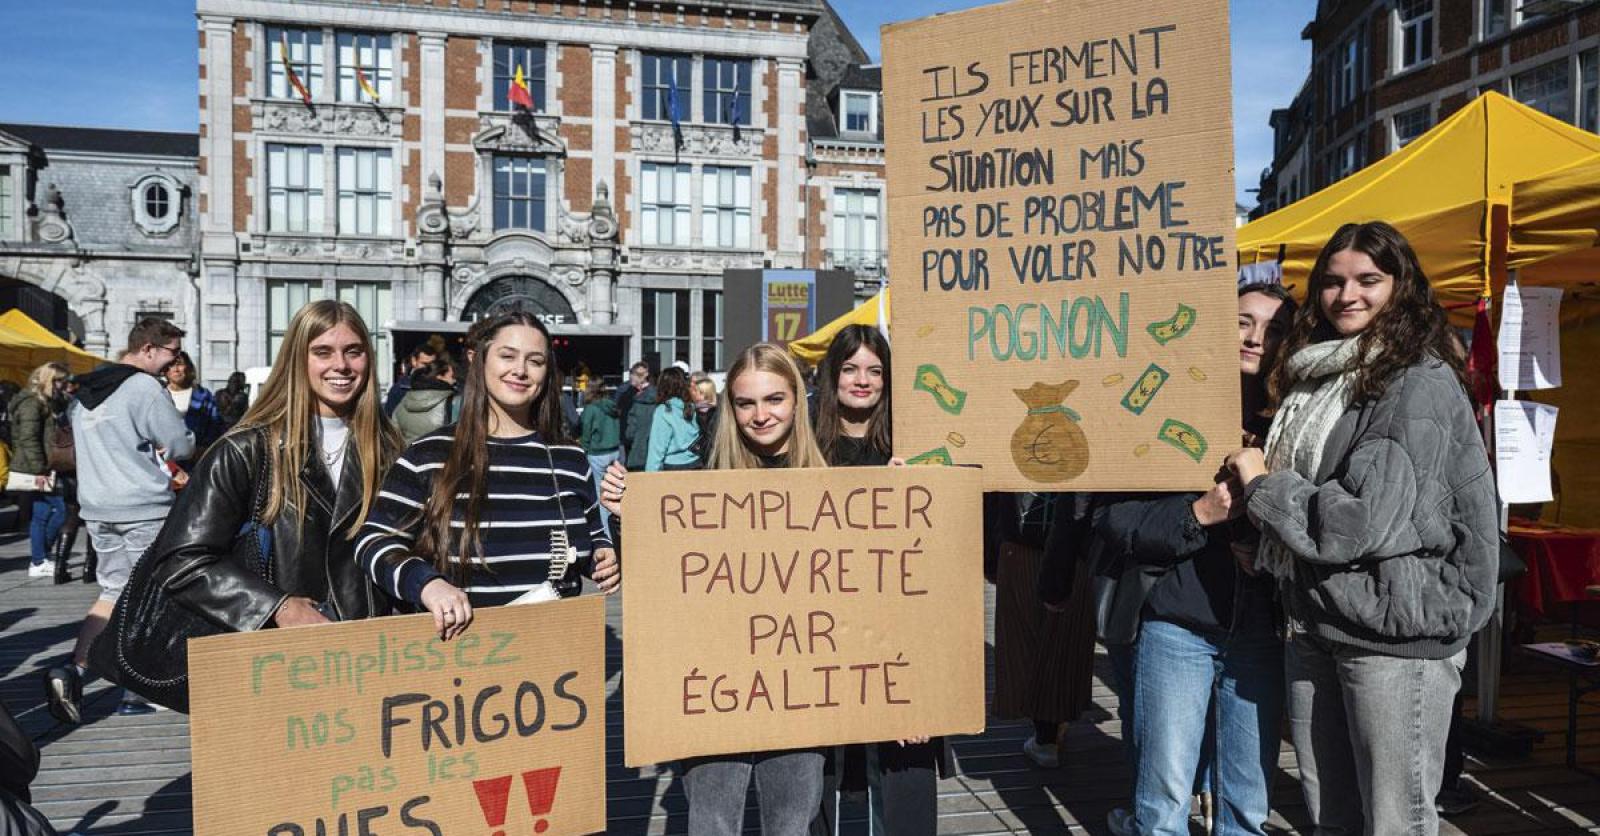 ILS FERMENT
LES YEUX SUR LA
SITUATION MAIS
PAS DE PROBLEME
POUR VOLER NOTRE
POGNON
€
Lutte
17
REMPLACER
PAUVRETÉ
PAR
ÉGALITÉ
remplissez
nos FRIGOS
pas les
RUES !!